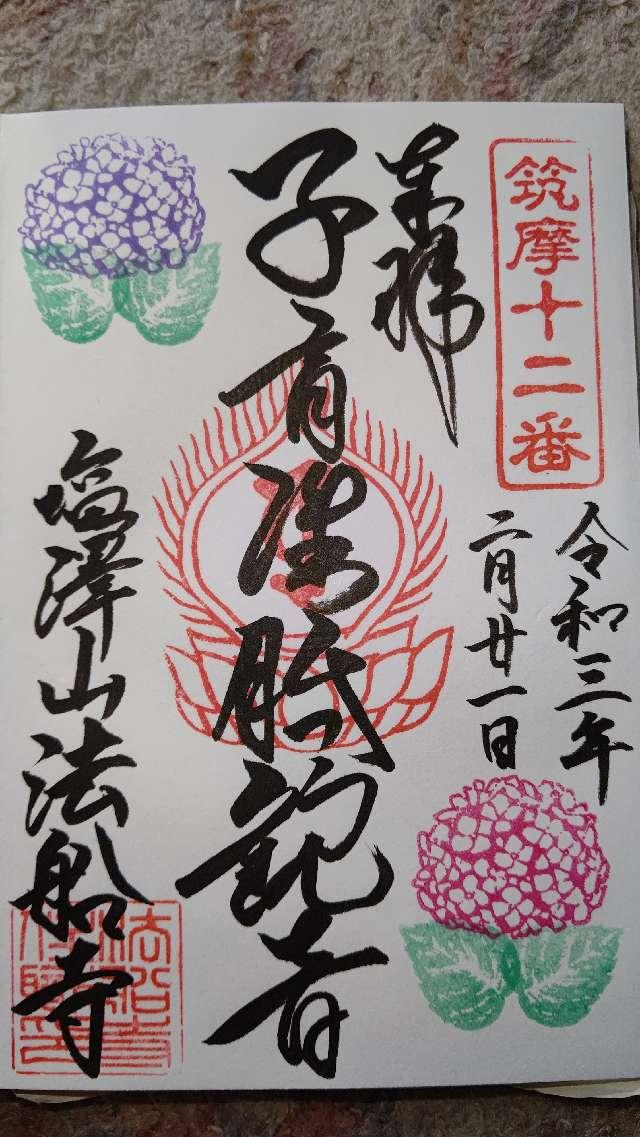 筑摩十二番
令和三年
二月廿一日
奉拝
子育准胝観音
塩澤山法船寺